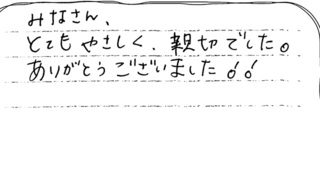 みなさん、
とてもやさしく、親切でした。
ありがとうございました!!